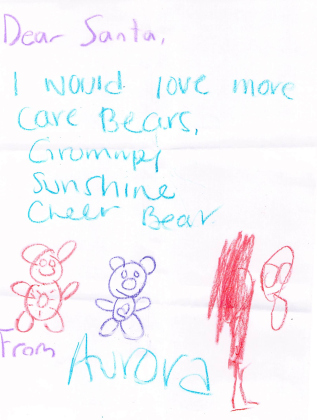 Dear Santa,
I would love more
Care Bears,
Grommpy
Sunshine
Cheer Bear
From Aurora